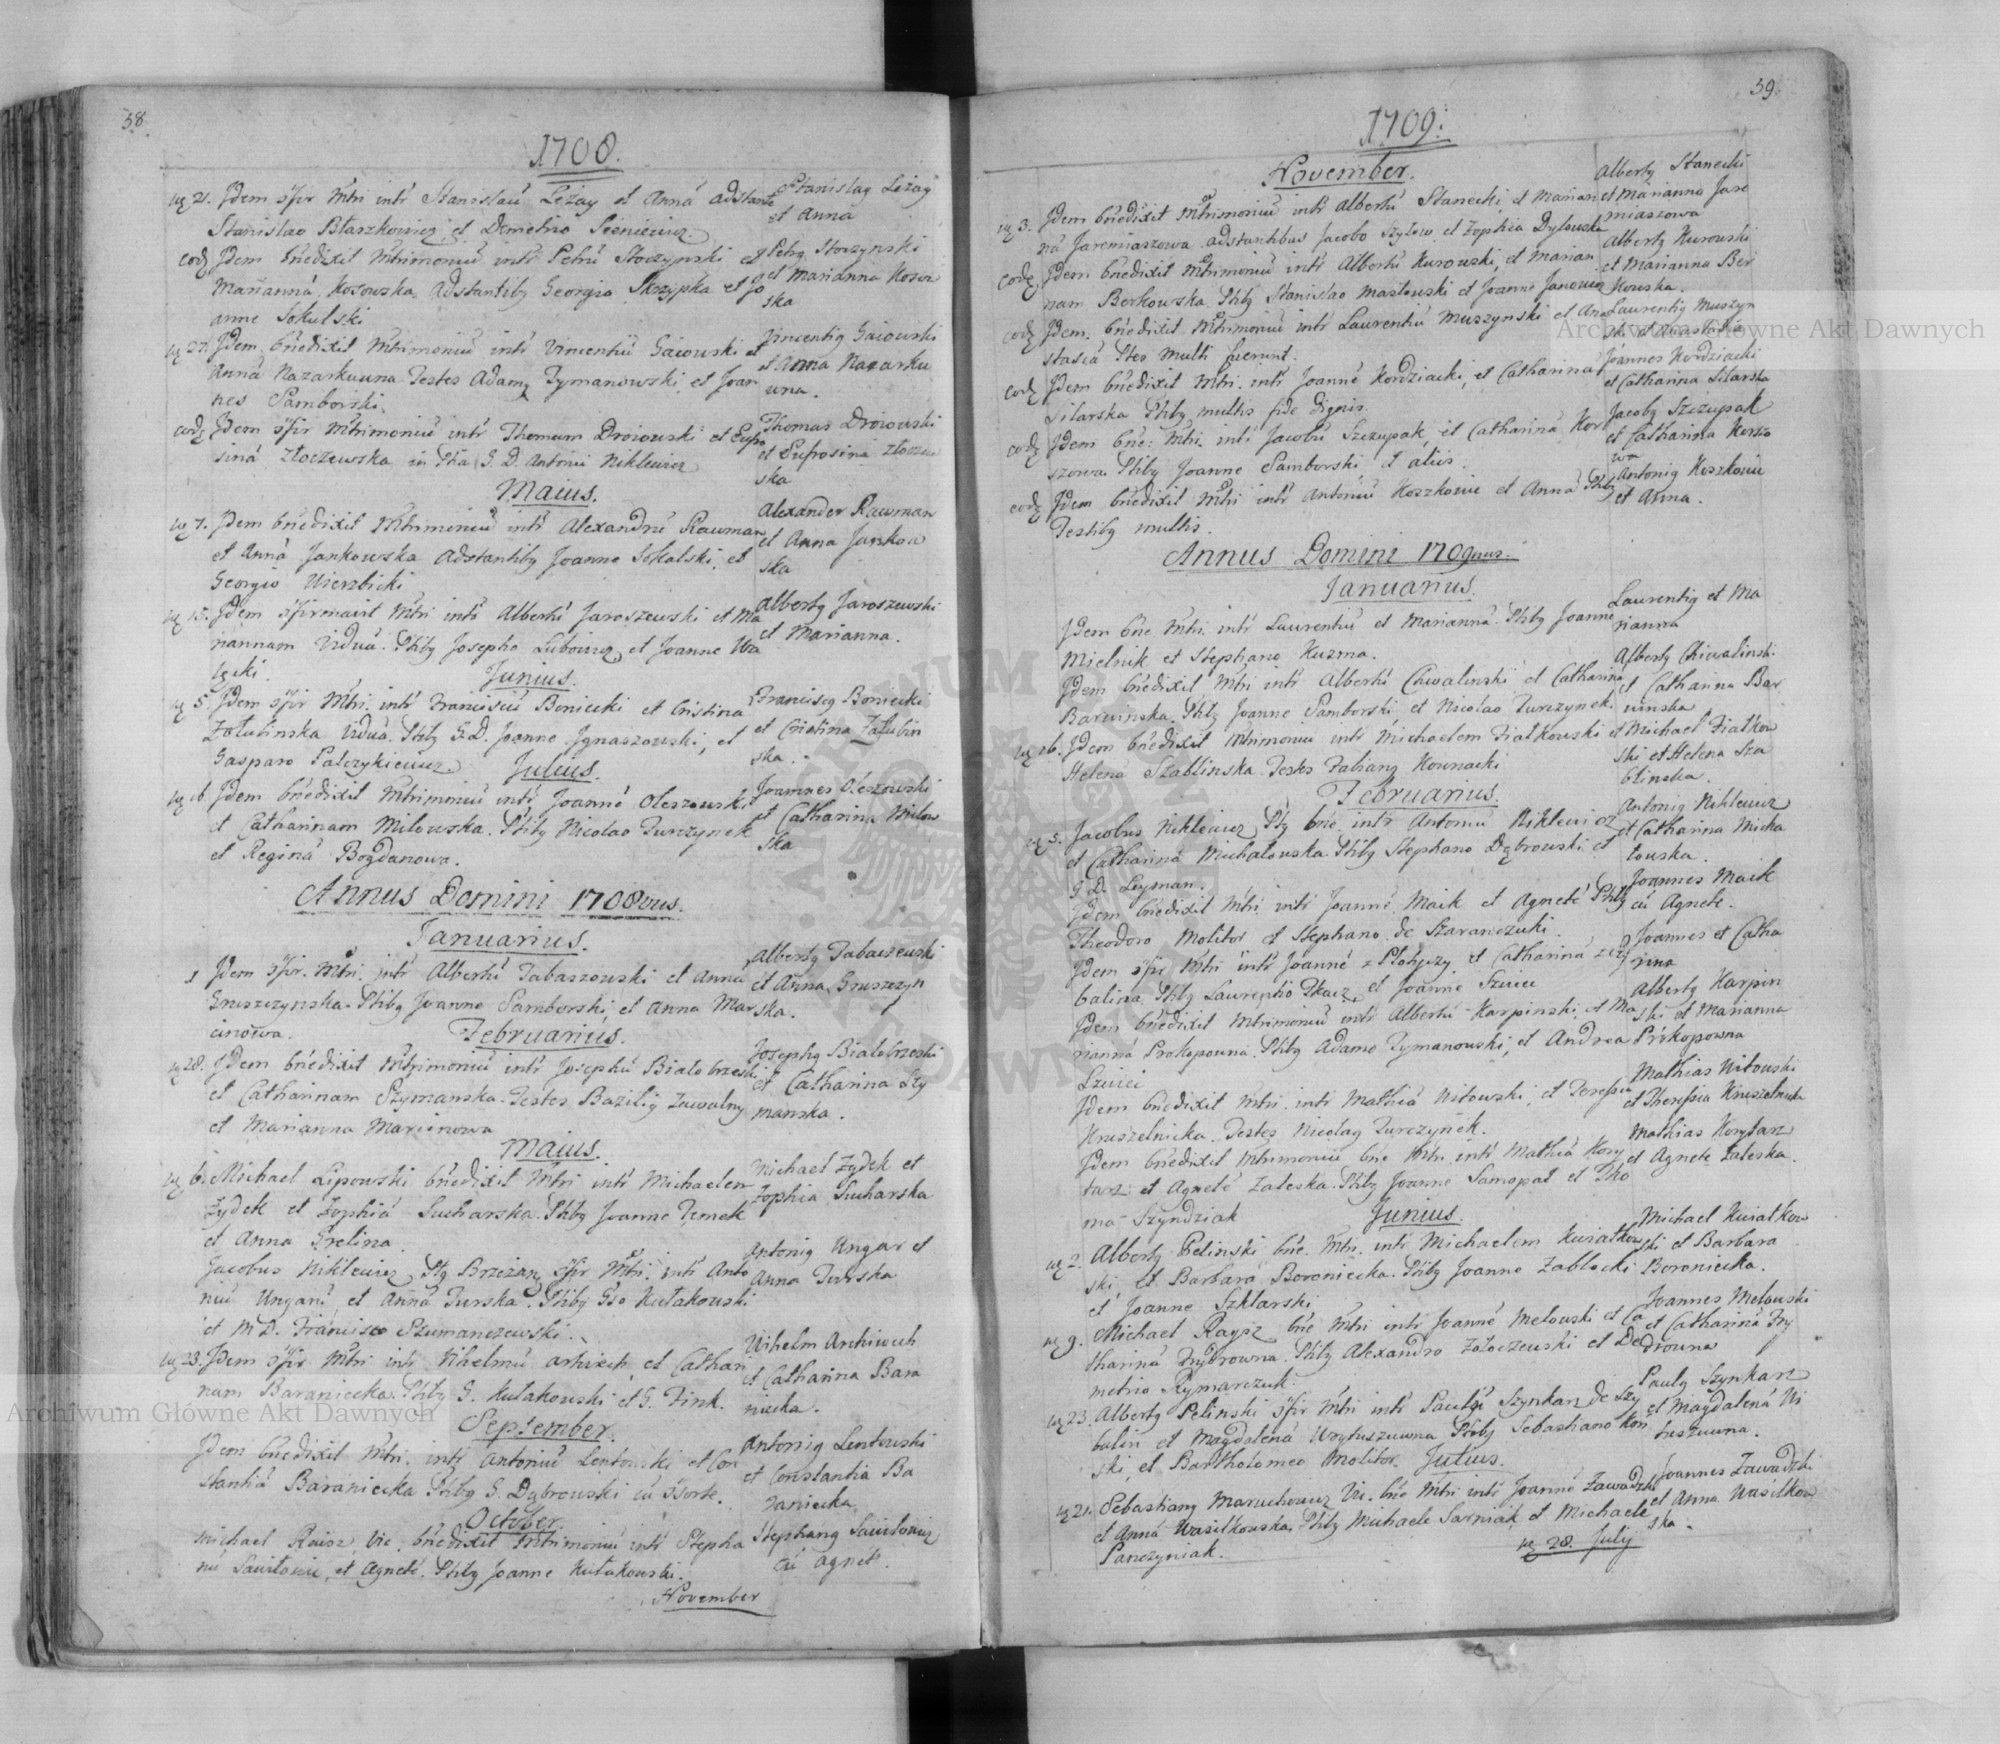 38.
1708.
21. Jdem Mtri intr Stanislaŭ Leżay et Anná adstante
Stanislao Błaszkowicz et Demetrio Sieniewicz
Stanislaq Leżay
et Anna
Jdem bnedixit Mtrimoniŭ intr Petrŭ Stoczynski et
Mariánná Kosowska Adstantibq Georgio Skrzypka et Jo
anne Sokulski
Petrq Stoczynski
et Marianna Kosow
ska
27. Jdem bnedixit Mtrimoniŭ intr Vincentiŭ Gaiowski et
Anná Nazarkuuna Testes Adamq Tymanowski et Joan
nes Samborski
Vincentiq Gaiowski
et Anna Nazarku
una.
Jdem Mtrimoniŭ intr Thomam Droiowski et Eufro
siná Złoczewska in G. D. Antonii Niklewicz
Thomas Droiowski
et Eufrosina Złoczew
ska
Maius.
7. Jdem bnedixit Mtrimoniŭ intr Alexandrŭ Rawman
et Anná Jankowska Adstantibq Joanne Sokalski et
Georgio Wierzbicki
Alexander Rawman
et Anna Jankow
ska
15. Jdem Mtri intr Albertŭ Jaroszewski et Ma
riannam Viduá. Ptibq Josepho Lubowicz et Joanne Wa
łęcki.
Albertq Jaroszewski
et Marianna.
Junius.
5. Jdem Mtri intr Franciscŭ Boniecki et Cristina
Załubinska Viduá. Ptibq G.D. Joanne Jgnaszowski, et
Gasparo Palczykiewicz
Franciscq Boniecki
et Cristina Załubin
ska.
Julius.
16. Jdem bnedixit Mtrimoniŭ intr Joanné Oleszowski
et Catharinam Milowska. Ptibq Nicolao Turczynek
et Reginá Bogdanowa.
Joannes Oleszowski
et Catharina Milow
ska
Annus Domini 1708vus.
Januarius.
1 Jdem Mtri intr Albertŭ Tabaszowski et Anná
Gruszczynska Ptibq Joanne Samborski, et Anna Mar
cinowa.
Albertq Tabaszewski
et Anna Gruszczyn
ska.
Februarius.
28. Jdem bnedixit Mtrimoniŭ intr Josephŭ Bialobrzeski
et Catharinam Szymanska. Testes Baziliq Zawalny
et Marianna Marcinowa
Josephq Bialobrzeski
et Catharina Szy
manska.
Maius.
6. Michael Lipowski bnedixit Mtri intr Michaelem
Zydek et Zophiá Sucharska. Ptibq Joanne Temek
et Anna Grelina
Michael Zydek et
Zophia Sucharska
Jacobus Niklewicz Mtri intr Anto
niŭ Ungarŭ, et Anná Turska. Ptibq Kułakowski
et M.D. Francisco Szumanczewski.
Antoniq Ungar et
Anna Turska
23. Jdem Mtri intr Wihelmŭ et Cathari
nam Baraniecka. Ptibq G. Kułakowski et G. Fink.
Wihelm
et Catharina Bara
niecka.
September.
Jdem bnedixit Mtri intr Antoniŭ Lentowski et Con
stantiá Baraniecka Ptibq G. Dąbrowski
Antoniq Lentowski
et Constantia Ba
raniecka
October.
Michael Raisz Vic. bnedixit Mtrimoniŭ intr Stepha
nŭ et Agneté. Ptibq Joanne Kułakowski.
Stephanq
cŭ Agneté.
November
39.
1709.
November.
3. Jdem bnedixit Mtrimoniŭ intr Albertŭ Stanecki et Marian
ná Jaremiaszowa adstantibus Jacobo Szylow et Zophia
Albertq Stanecki
et Marianna Jare
miaszowa
Jdem bnedixit Mtrimoniŭ intr Albertŭ Kurowski, et Marian
nam Berkowska. Ptibq Stanislao Masłowski et Joanne Janowicz
Albertq Kurowski
et Marianna Ber
kowska.
Jdem bnedixit Mtrimoniŭ intr Laurentiŭ Muszynski et Ana
stasiá Ptes multi fuerunt.
Laurentiq Muszyn
ski et Anastasia
Jdem bnedixit Mtri. intr Joanné Kordziacki, et Catharina
Silarska Ptibq multis fide dignis.
Joannes Kordziacki
et Catharina Silarska
Jdem bne: Mtri. intr Jacobŭ Szczupak et Catharina Kor
szowa. Ptibq Joanne Samborski et aliis.
Jacobq Szczupak
et Catharina Korszo
wa
Jdem bnedixit Mtri intr Antoniŭ Koszkowic et Anná Ptibq
Testibq multis.
Antoniq Koszkowic
et Anna.
Annus Domini 1709nus.
Januarius.
Jdem bne Mtri. intr Laurentiŭ et Marianná. Ptibq Joanne
Mielnik et Stephano Kuzma.
Laurentiq et Ma
rianna
Jdem bnedixit Mtri intr Albertŭ Chwalinski et Catharina
Barwinska. Ptibq Joanne Samborski et Nicolao Turczynek.
Albertq Chwalinski
et Catharina Bar
winska
16. Jdem bnedixit Mtrimoniŭ intr Michaelem Fiałkowski et
Helená Szablinska Testes Fabianq Kownacki
Michael Fiałkow
ski et Helena Sza
blinska.
Februarius.
5. Jacobus Niklewicz bne intr Antoniŭ Niklewicz
et Catharina Michałowska. Ptibq Stephano Dąbrowski et
G. D. Leyman.
Antoniq Niklewicz
et Catharina Micha
łowska.
Jdem bnedixit Mtri intr Joanné Maik et Agneté Ptibq
Theodoro Molitor et Stephano de Szaranczuki.
Joannes Maik
cŭ Agnete.
Jdem Mtri intr Joanné z Płotyczy et Catharina z
balina. Ptibq Laurentio Tkacz et Joanne Szwiec
Joannes et Catha
rina
Jdem bnedixit Mtrimoniŭ intr Albertŭ Karpinski et Ma
rianná Prokopowna. Ptibq Adamo Tymanowski, et Andrea
Szwiec
Albertq Karpin
ski et Marianna
Prokopowna
Jdem bnedixit Mtri intr Mathiá Witowski, et Teresia
Kruszelnicka. Testes Nicolaq Turczynek.
Mathias Witowski
et Theresia Kruszelnicka
Jdem bnedixit Mtrimoniŭ bne Mtri intr Mathiá Kory
tarz et Agneté Zaleska. Ptibq Joanne Samopał et Tho
ma Szyndziak
Mathias Korytarz
et Agnete Zaleska.
Junius.
2. Albertq Pelinski bne. Mtri. intr Michaelem Kwiatkow
ski et Barbará Boroniecka. Ptibq Joanne Zablocki
et Joanne Szklarski
Michael Kwiatkow
ski et Barbara
Boroniecka.
9. Michael Raysz bne Mtri intr Joanné Melowski et Ca
tharina Fnydrowna. Ptibq Alexandro Zołoczewski et De
metrio Rymarczuk.
Joannes Melowski
et Catharina Fny
drowna
23. Albertq Pelinski Mtri intr Paulŭ Szynkarz de Szy
balin et Magdalená Wrytuszuwna Ptibq Sebastiano Kon
ski, et Bartholomeo Molitor.
Paulq Szynkarz
et Magdalená
Julius.
21. Sebastianq Maruchowicz Vic. bne Mtri intr Joanné Zawadzki
et Anná Wasilkowska, Ptibq Michaele Sarniak, et Michaele
Panczyniak.
Joannes Zawadzki
et Anna Wasilkow
ska.
28. July
Archiwum Główne Akt Dawnych
Archiwum Główne Akt Dawnych